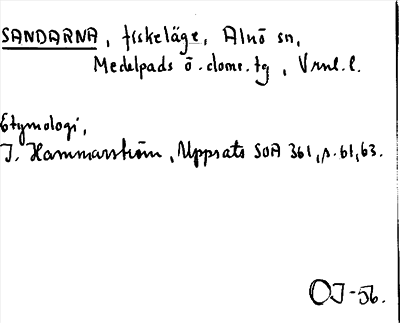 SANDARNA, fiskeläge, Alnö sn,
Medelpads ö. doms. tg, Vrnl. l.
Etymologi,
J. Hammarström, Uppsats SOA 361, s. 61, 63.
OJ-56.